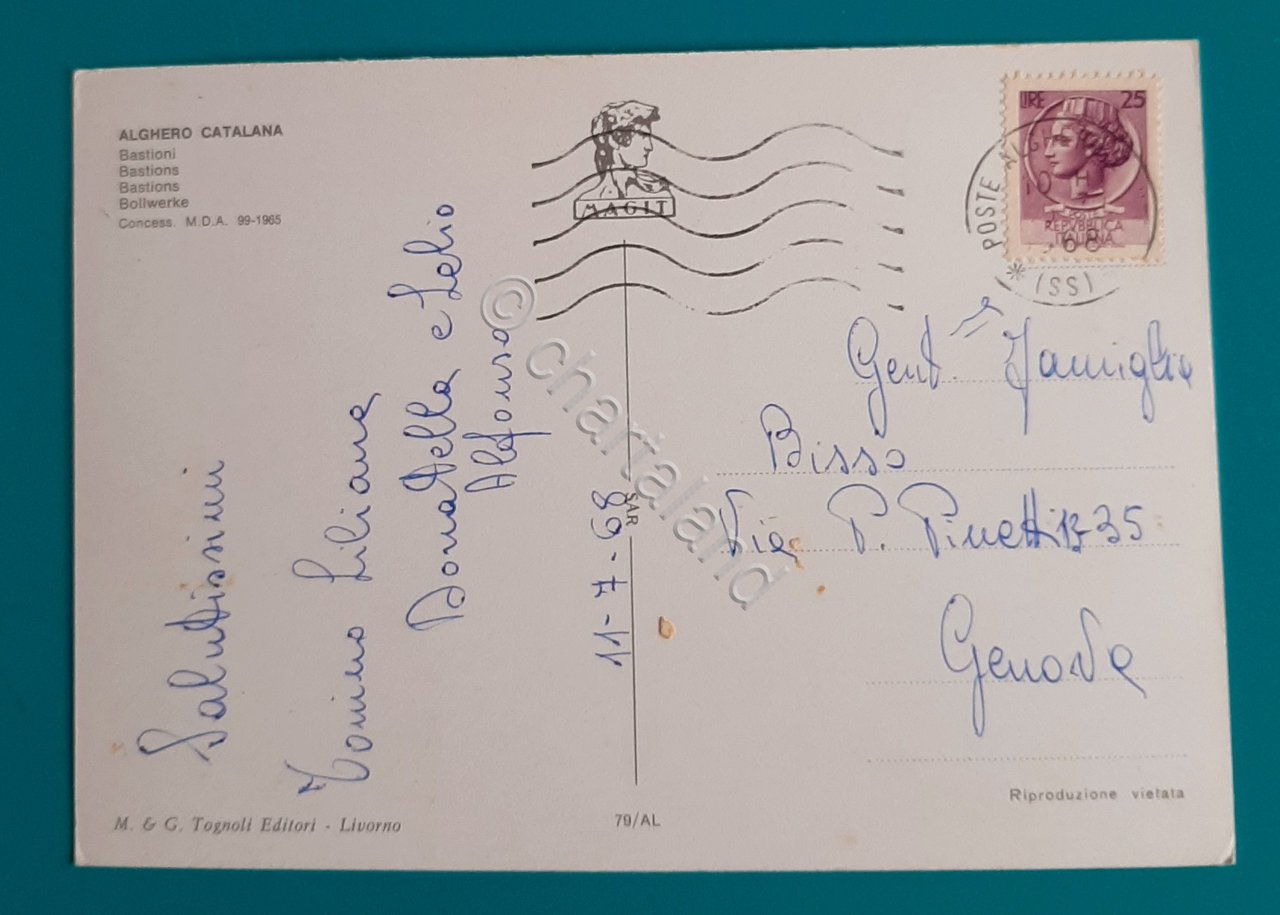 ALGHERO CATALANA
Bastioni
Bastions
Bastions
Bollwerke
Concess. M.D.A. 99-1965
MAGIT
LIRE 25
POSTE
REPVBBLICA
ITALIANA
POSTE
68
(SS)
Salutissimi
Tonino Liliana
Donatella e Lelio
Alfonso
11-7-68
SAR
Gent. Famiglia
Bisso
Via P. Pinetti 13-35
Genova
M. & G. Tognoli Editori - Livorno
79/AL
Riproduzione vietata
© chartaland